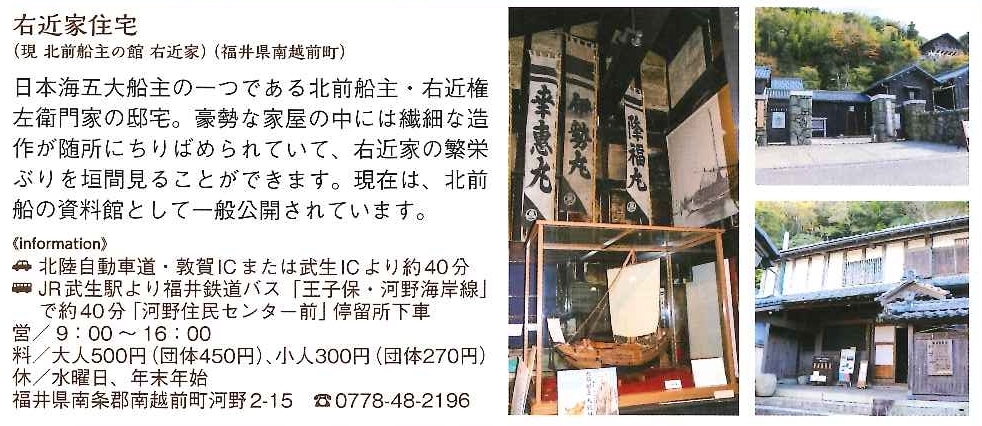 右近家住宅
（現 北前船主の館 右近家）（福井県南越前町）
日本海五大船主の一つである北前船主・右近権
左衛門家の邸宅。豪勢な家屋の中には繊細な造
作が随所にちりばめられていて、右近家の繁栄
ぶりを垣間見ることができます。現在は、北前
船の資料館として一般公開されています。
《information》
北陸自動車道・敦賀ICまたは武生ICより約40分
JR武生駅より福井鉄道バス「王子保・河野海岸線」
で約40分「河野住民センター前」停留所下車
営／9：00～16：00
料／大人500円（団体450円）、小人300円（団体270円）
休／水曜日、年末年始
福井県南条郡南越前町河野2-15 ☎0778-48-2196
幸恵丸
伊勢丸
隆福丸